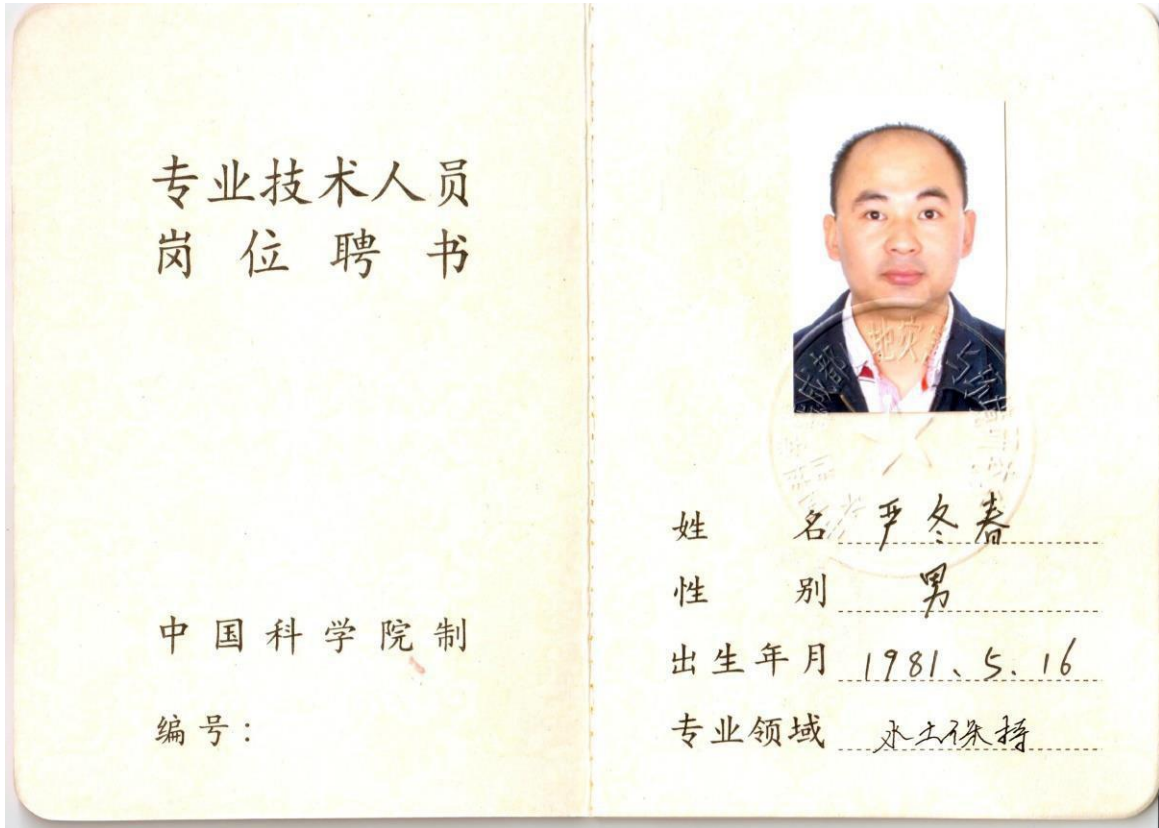 专业技术人员
岗位聘书
中国科学院制
编号：
姓名 严冬春
性别 男
出生年月 1981、5.16
专业领域 水土保持